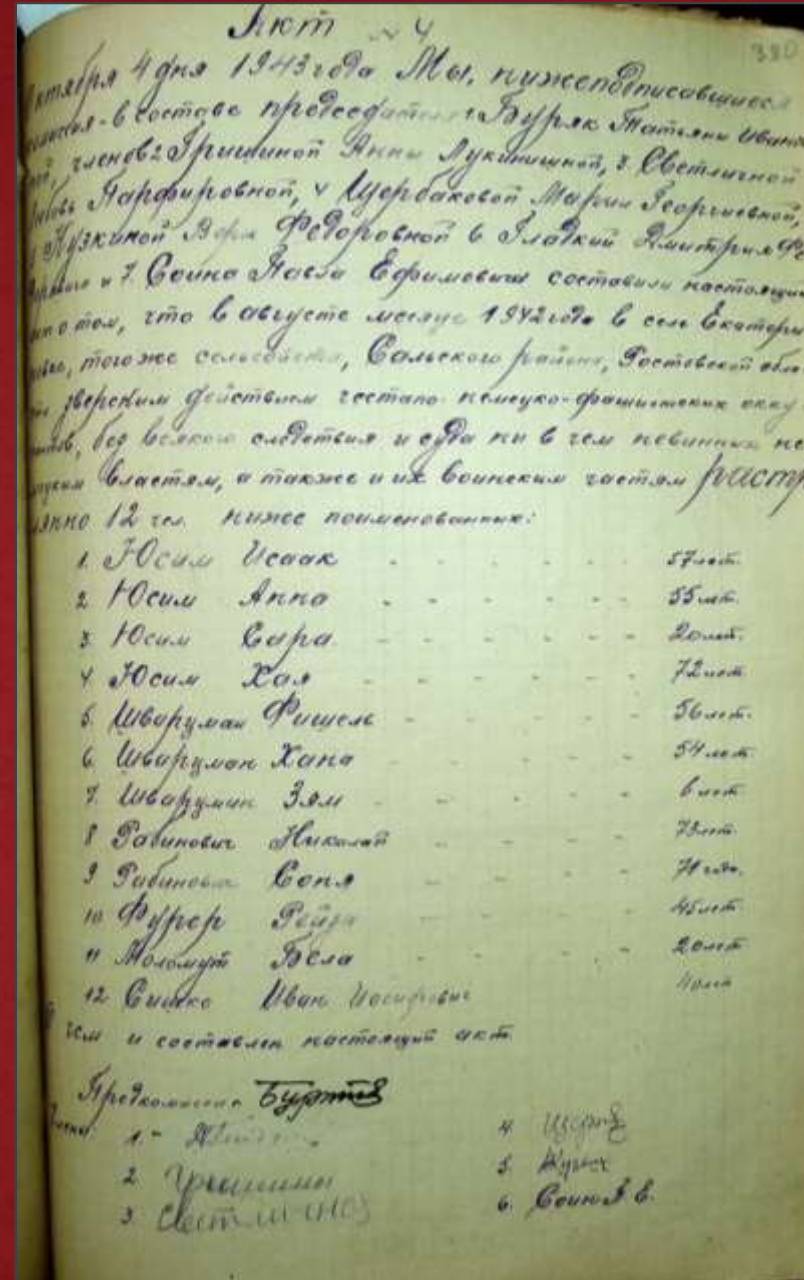 Акт № 4
380
ктября 4 дня 1943 года Мы, нижеподписавшиеся
миссия - в составе председателя: Буряк Татьяны Ивано
ной, членов 2 Гришиной Анны Лукинишной, 3. Светличной
Любовь Парфировной, 4 Щербаковой Марии Георгиевной,
Кузкиной Веры Федоровной 6 Гладкий Дмитрия Фе
и 7. Соина Павла Ефимовича составили настоящий
о том, что в августе месяце 1942 года в селе Екатери
, того же сельсовета, Сальского района, Ростовской обла
сти зверским действием гестапо немецко-фашистских окку
нтов, без всякого следствия и суда ни в чем невинных не
мецким властям, а также и их воинским частям растр
ляно 12 чел. ниже поименованных:
1. Юсим Исаак - - - - - - 57 лет.
2 Юсим Анна - - - - - - 55 лет.
3. Юсим Сара - - - - - - 20 лет.
4 Юсим Хая - - - - - - 72 лет
5. Шварцман Фишель - - - - - 56 лет.
6. Шварцман Хана - - - - - 54 лет.
7. Шварцман Зям - - - - - 6 лет
8 Рабинович Николай - - - - 73 лет.
9 Рабинович Соня - - - - 71 года.
10 Фурер - - - - 45 лет
11 Моломут Бела - - - - 20 лет
12 Сишко Иван Иосифович 40 лет
О чем и составлен настоящий акт.
Предкомиссии
Члены:
1. -
2 Гришина
3
4.
5.
6. Соин П. Е.